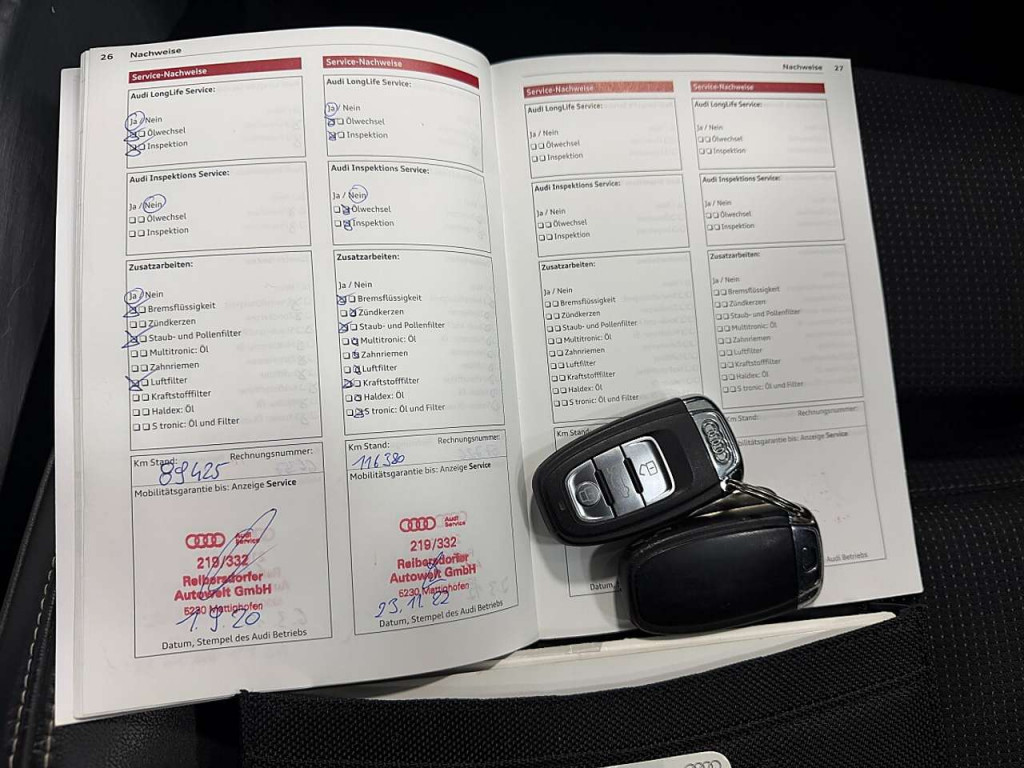 26 Nachweise
Service-Nachweise
Audi LongLife Service:
Ja / Nein
Ölwechsel
Inspektion
Audi Inspektions Service:
Ja / Nein
Ölwechsel
Inspektion
Zusatzarbeiten:
Ja / Nein
Bremsflüssigkeit
Zündkerzen
Staub- und Pollenfilter
Multitronic: Öl
Zahnriemen
Luftfilter
Kraftstofffilter
Haldex: Öl
S tronic: Öl und Filter
Km Stand: Rechnungsnummer:
89425
Mobilitätsgarantie bis: Anzeige Service
Audi
Service
219/332
Reibersdorfer
Autowelt GmbH
5230 Mattighofen
1.9.20
Datum, Stempel des Audi Betriebs
Service-Nachweise
Audi LongLife Service:
Ja / Nein
Ölwechsel
Inspektion
Audi Inspektions Service:
Ja / Nein
Ölwechsel
Inspektion
Zusatzarbeiten:
Ja / Nein
Bremsflüssigkeit
Zündkerzen
Staub- und Pollenfilter
Multitronic: Öl
Zahnriemen
Luftfilter
Kraftstofffilter
Haldex: Öl
S tronic: Öl und Filter
Km Stand: Rechnungsnummer:
116380
Mobilitätsgarantie bis: Anzeige Service
Audi
Service
219/332
Reibersdorfer
Autowelt GmbH
5230 Mattighofen
23.11.22
Datum, Stempel des Audi Betriebs
Nachweise 27
Service-Nachweise
Audi LongLife Service:
Ja / Nein
Ölwechsel
Inspektion
Audi Inspektions Service:
Ja / Nein
Ölwechsel
Inspektion
Zusatzarbeiten:
Ja / Nein
Bremsflüssigkeit
Zündkerzen
Staub- und Pollenfilter
Multitronic: Öl
Zahnriemen
Luftfilter
Kraftstofffilter
Haldex: Öl
S tronic: Öl und Filter
Km Stand
Datum,
Service-Nachweise
Audi LongLife Service:
Ja / Nein
Ölwechsel
Inspektion
Audi Inspektions Service:
Ja / Nein
Ölwechsel
Inspektion
Zusatzarbeiten:
Ja / Nein
Bremsflüssigkeit
Zündkerzen
Staub- und Pollenfilter
Multitronic: Öl
Zahnriemen
Luftfilter
Kraftstofffilter
Haldex: Öl
S tronic: Öl und Filter
Km Stand: Rechnungsnummer:
Mobilitätsgarantie bis: Anzeige Service
Audi Betriebs